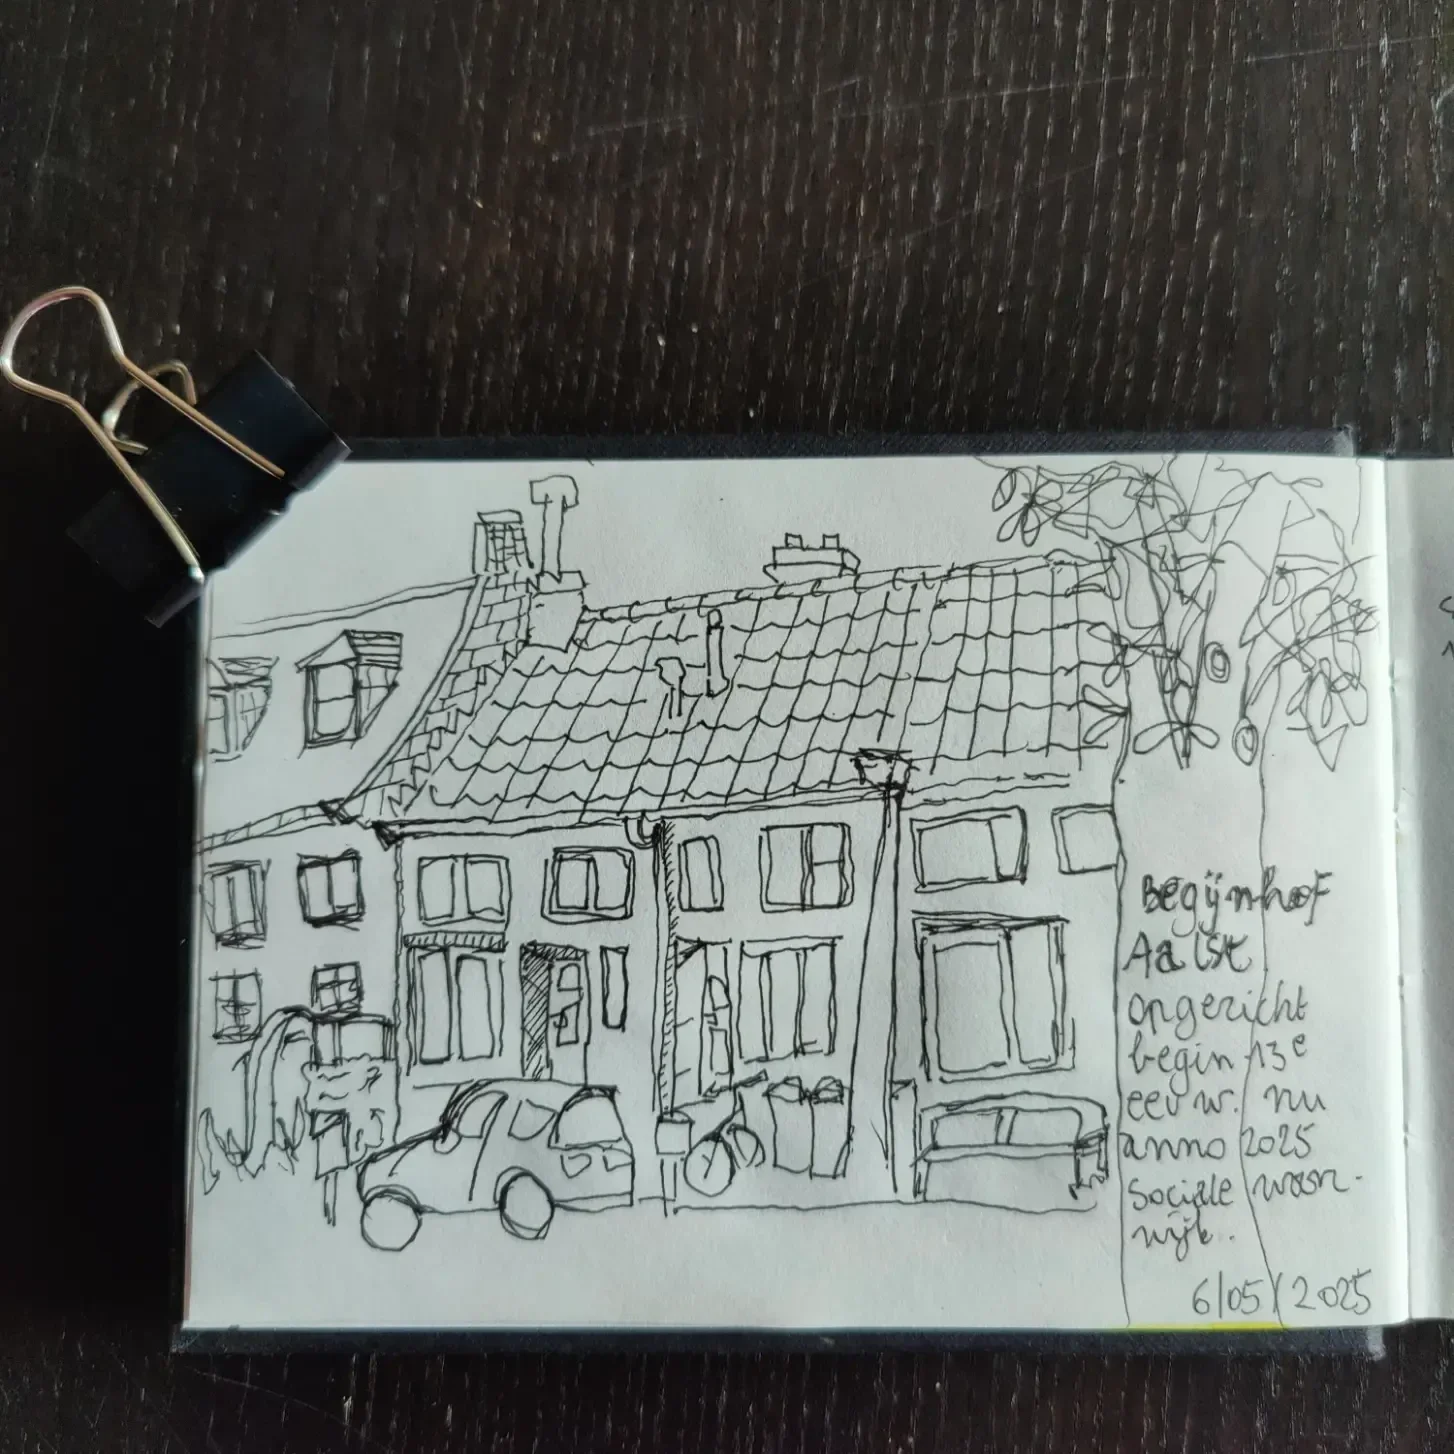 Begijnhof
Aalst
opgericht
begin 13e
eeuw. nu
anno 2025
sociale woon-
wijk.
6/05/2025